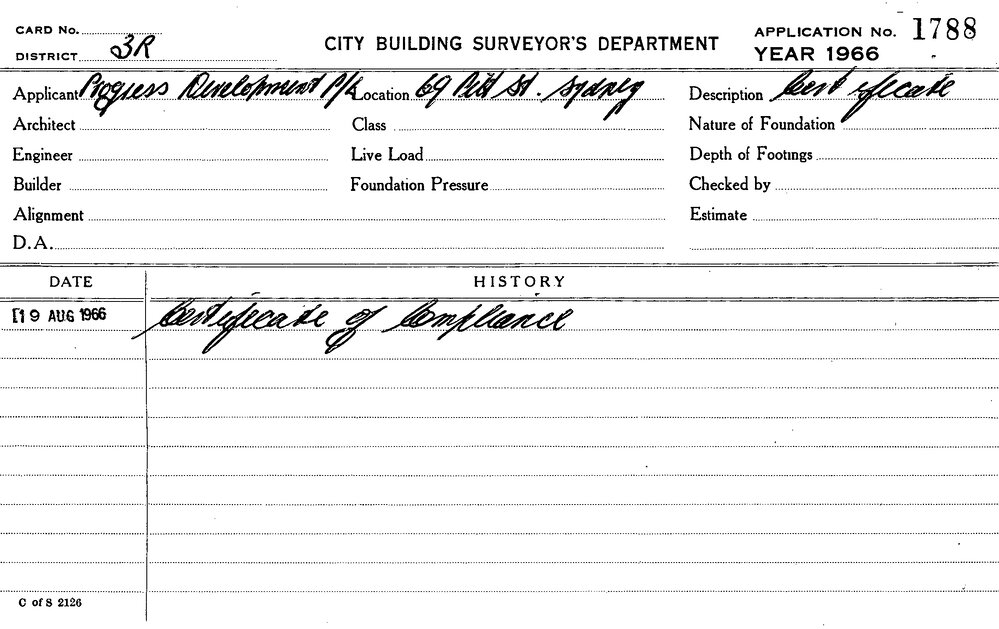 CARD No.
DISTRICT 3R
CITY BUILDING SURVEYOR'S DEPARTMENT
APPLICATION No. 1788
YEAR 1966
Applicant Progress Development P/L Location 69 Pitt St. Sydney Description Certificate
Architect Class Nature of Foundation
Engineer Live Load Depth of Footings
Builder Foundation Pressure Checked by
Alignment Estimate
D.A.
DATE HISTORY
19 AUG 1966 Certificate of Compliance
C of S 2126